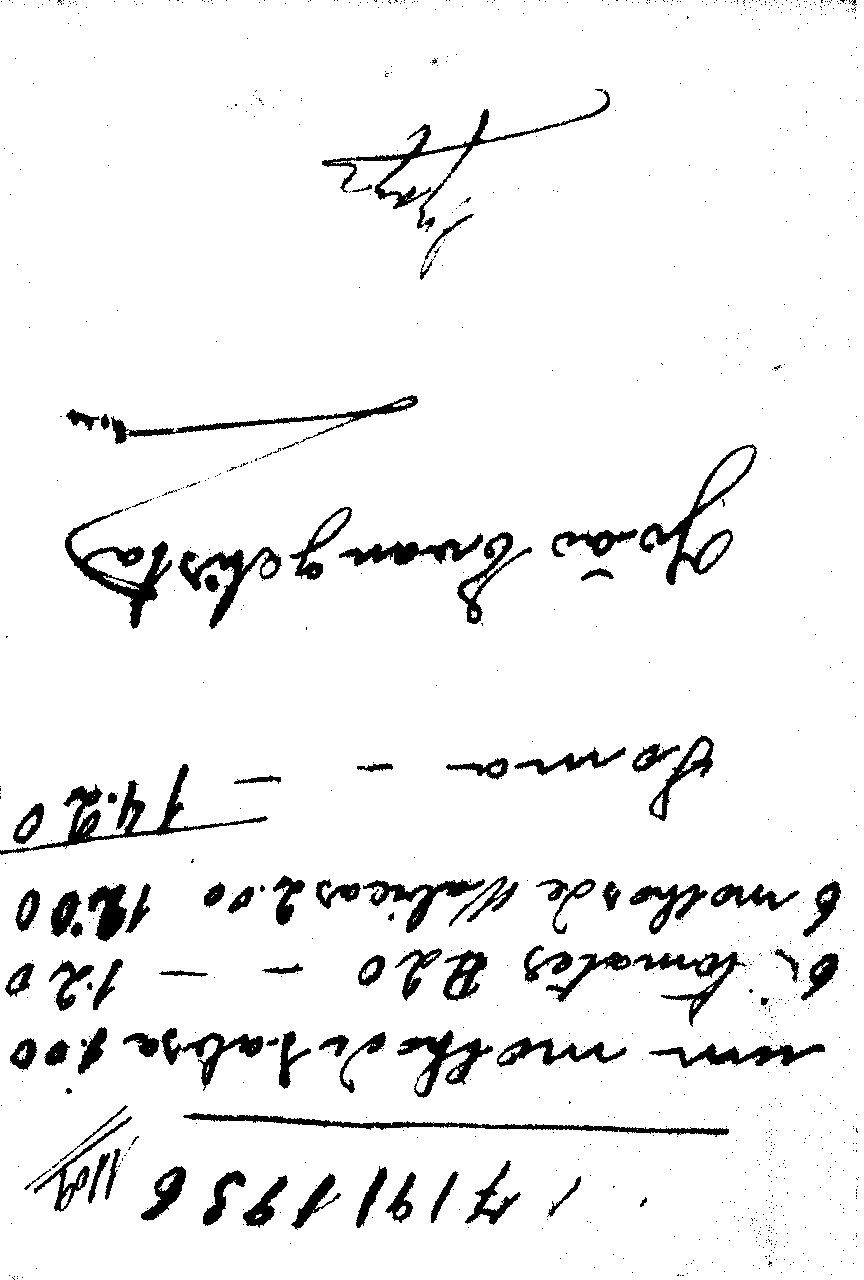 17/9/1956
um molho di salsa 1.00
6 tomates 20 - - 1.20
6 molhos de Nabicas 2.00 12.00
Soma - - - 14.20
João Evangelista